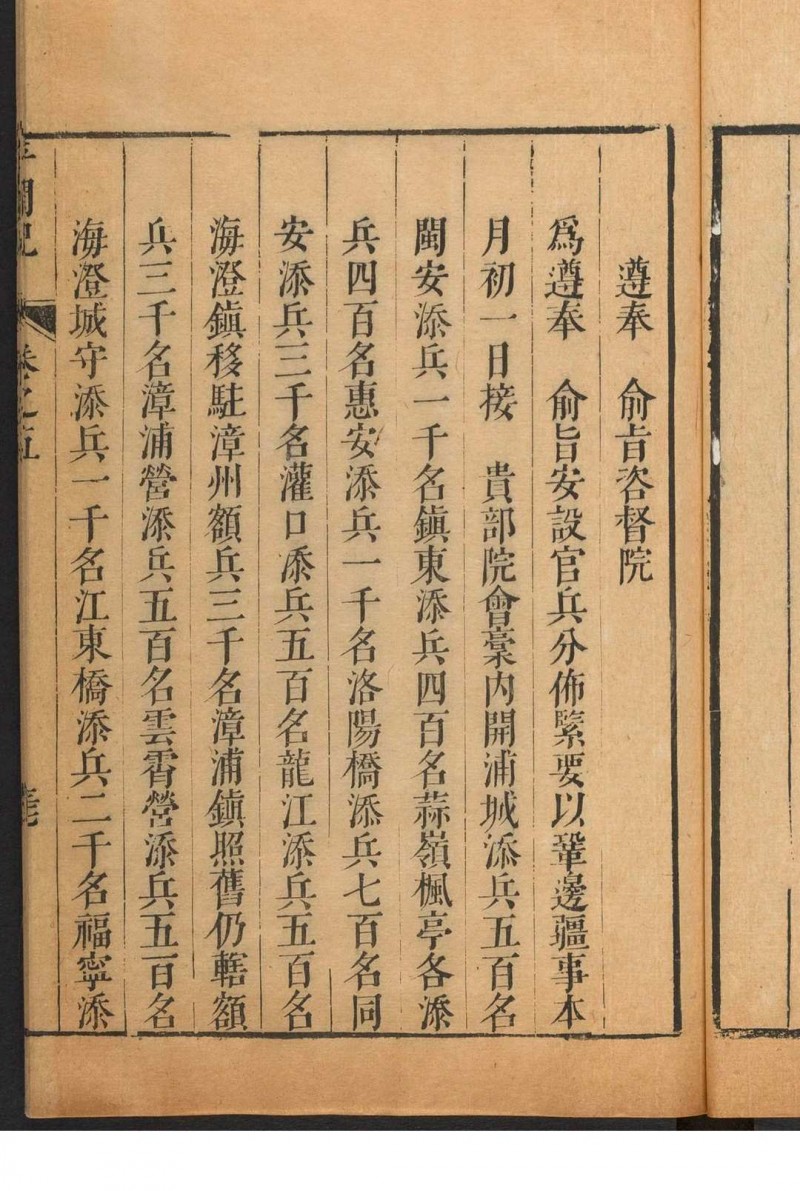 遵奉　俞旨咨督院
爲遵奉　俞旨安設官兵分佈緊要以鞏邊疆事本
月初一日接　貴部院會藁內開浦城添兵五百名
閩安添兵一千名鎮東添兵四百名蒜嶺楓亭各添
兵四百名惠安添兵一千名洛陽橋添兵七百名同
安添兵三千名灌口添兵五百名龍江添兵五百名
海澄鎮移駐漳州額兵三千名漳浦鎮照舊仍轄額
兵三千名漳浦營添兵五百名雲霄營添兵五百名
海澄城守添兵一千名江東橋添兵二千名福寧添
閩記　卷之五